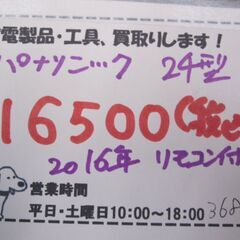 電製品・工具、買取りします!
パナソニック 24型
16500(税込
2016年 リモコン付
営業時間
平日・土曜日10:00〜18:00